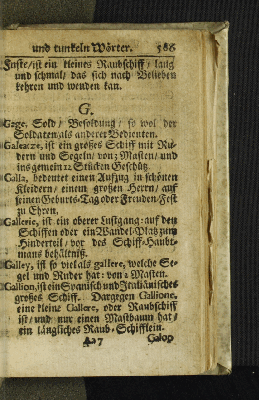 und tunkeln Wörter. 586
Fuste/ ist ein kleines Raubschiff/ lang
und schmal/ das sich nach Belieben
kehren und wenden kan.
G.
Gage, Sold/ Besoldung/ so wol der
Soldaten/ als anderer Bedienten.
Galeazze, ist ein großes Schiff mit Ru-
dern und Segeln/ von 3 Masten/ und
ins gemein 12 Stücken Geschütz.
Galla, bedeutet einen Aufzug in schönen
Kleidern/ einem großen Herrn/ auf
seinen Geburts-Tag oder Freuden-Fest
zu Ehren.
Gallerie, ist ein oberer Lustgang/ auf den
Schiffen oder ein Wandel-Platz zum
Hinderteil/ vor des Schiff-Haubt-
mans behältniß.
Galley, ist so viel als gallere, welche Se-
gel und Ruder hat: von 2 Masten.
Gallion, ist ein Spanisch und Italiänisches
großes Schiff. Dargegen Gallione,
eine kleine Galere, oder Raubschiff
ist/ und nur einen Mastbaum hat/
ein längliches Raub-Schifflein.
Galop